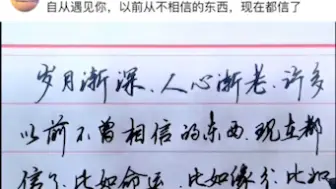 自从遇见你，以前从不相信的东西，现在都信了
岁月渐深、人心渐老、许多
以前不曾相信的东西、现在都
信了、比如命运、比如缘分、比如